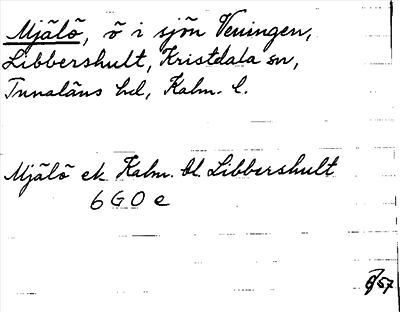 Mjälö, ö i sjön Veningen,
Libbershult, Kristdala sn,
Tunaläns hd, Kalm. l.
Mjälö ek Kalm. bl. Libbershult
6 G 0 e